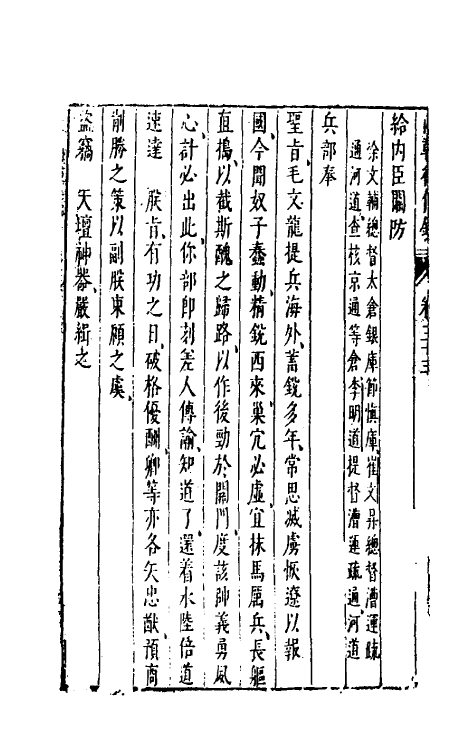 給内臣關防
徐文輔總督太倉銀庫節慎庫崔文昇總督漕運疏
通河道查核京通等倉李明道提督漕運疏通河道
兵部奉
聖旨毛文龍提兵海外蓄銳多年常思滅虜恢遼以報
國今聞奴子蠢動精銳西來巢穴必虛宜抹馬厲兵長驅
直搗以截斯醜之歸路以作後勁於關門度該帥義勇夙
心計必出此你部卽刻差人傳諭知道了還着水陸倍道
速達朕旨有功之日破格優酬卿等亦各矢忠猷預商
制勝之策以副朕東顧之虞
盜竊天壇神器嚴緝之